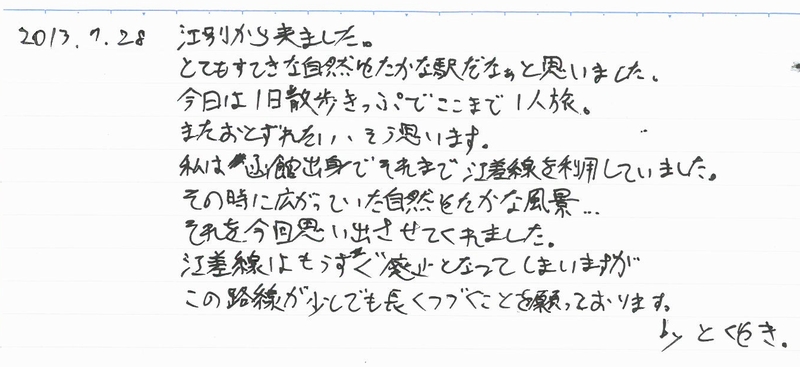 2013.7.28 江別から来ました。
とてもすてきな自然ゆたかな駅だなぁと思いました。
今日は1日散歩きっぷでここまで1人旅。
またおとずれたい、そう思います。
私は函館出身でそれまで江差線を利用していました。
その時に広がっていた自然ゆたかな風景...
それを今回思い出させてくれました。
江差線はもうすぐ廃止となってしまいますが
この路線が少しでも長くつづくことを願っております。
by と